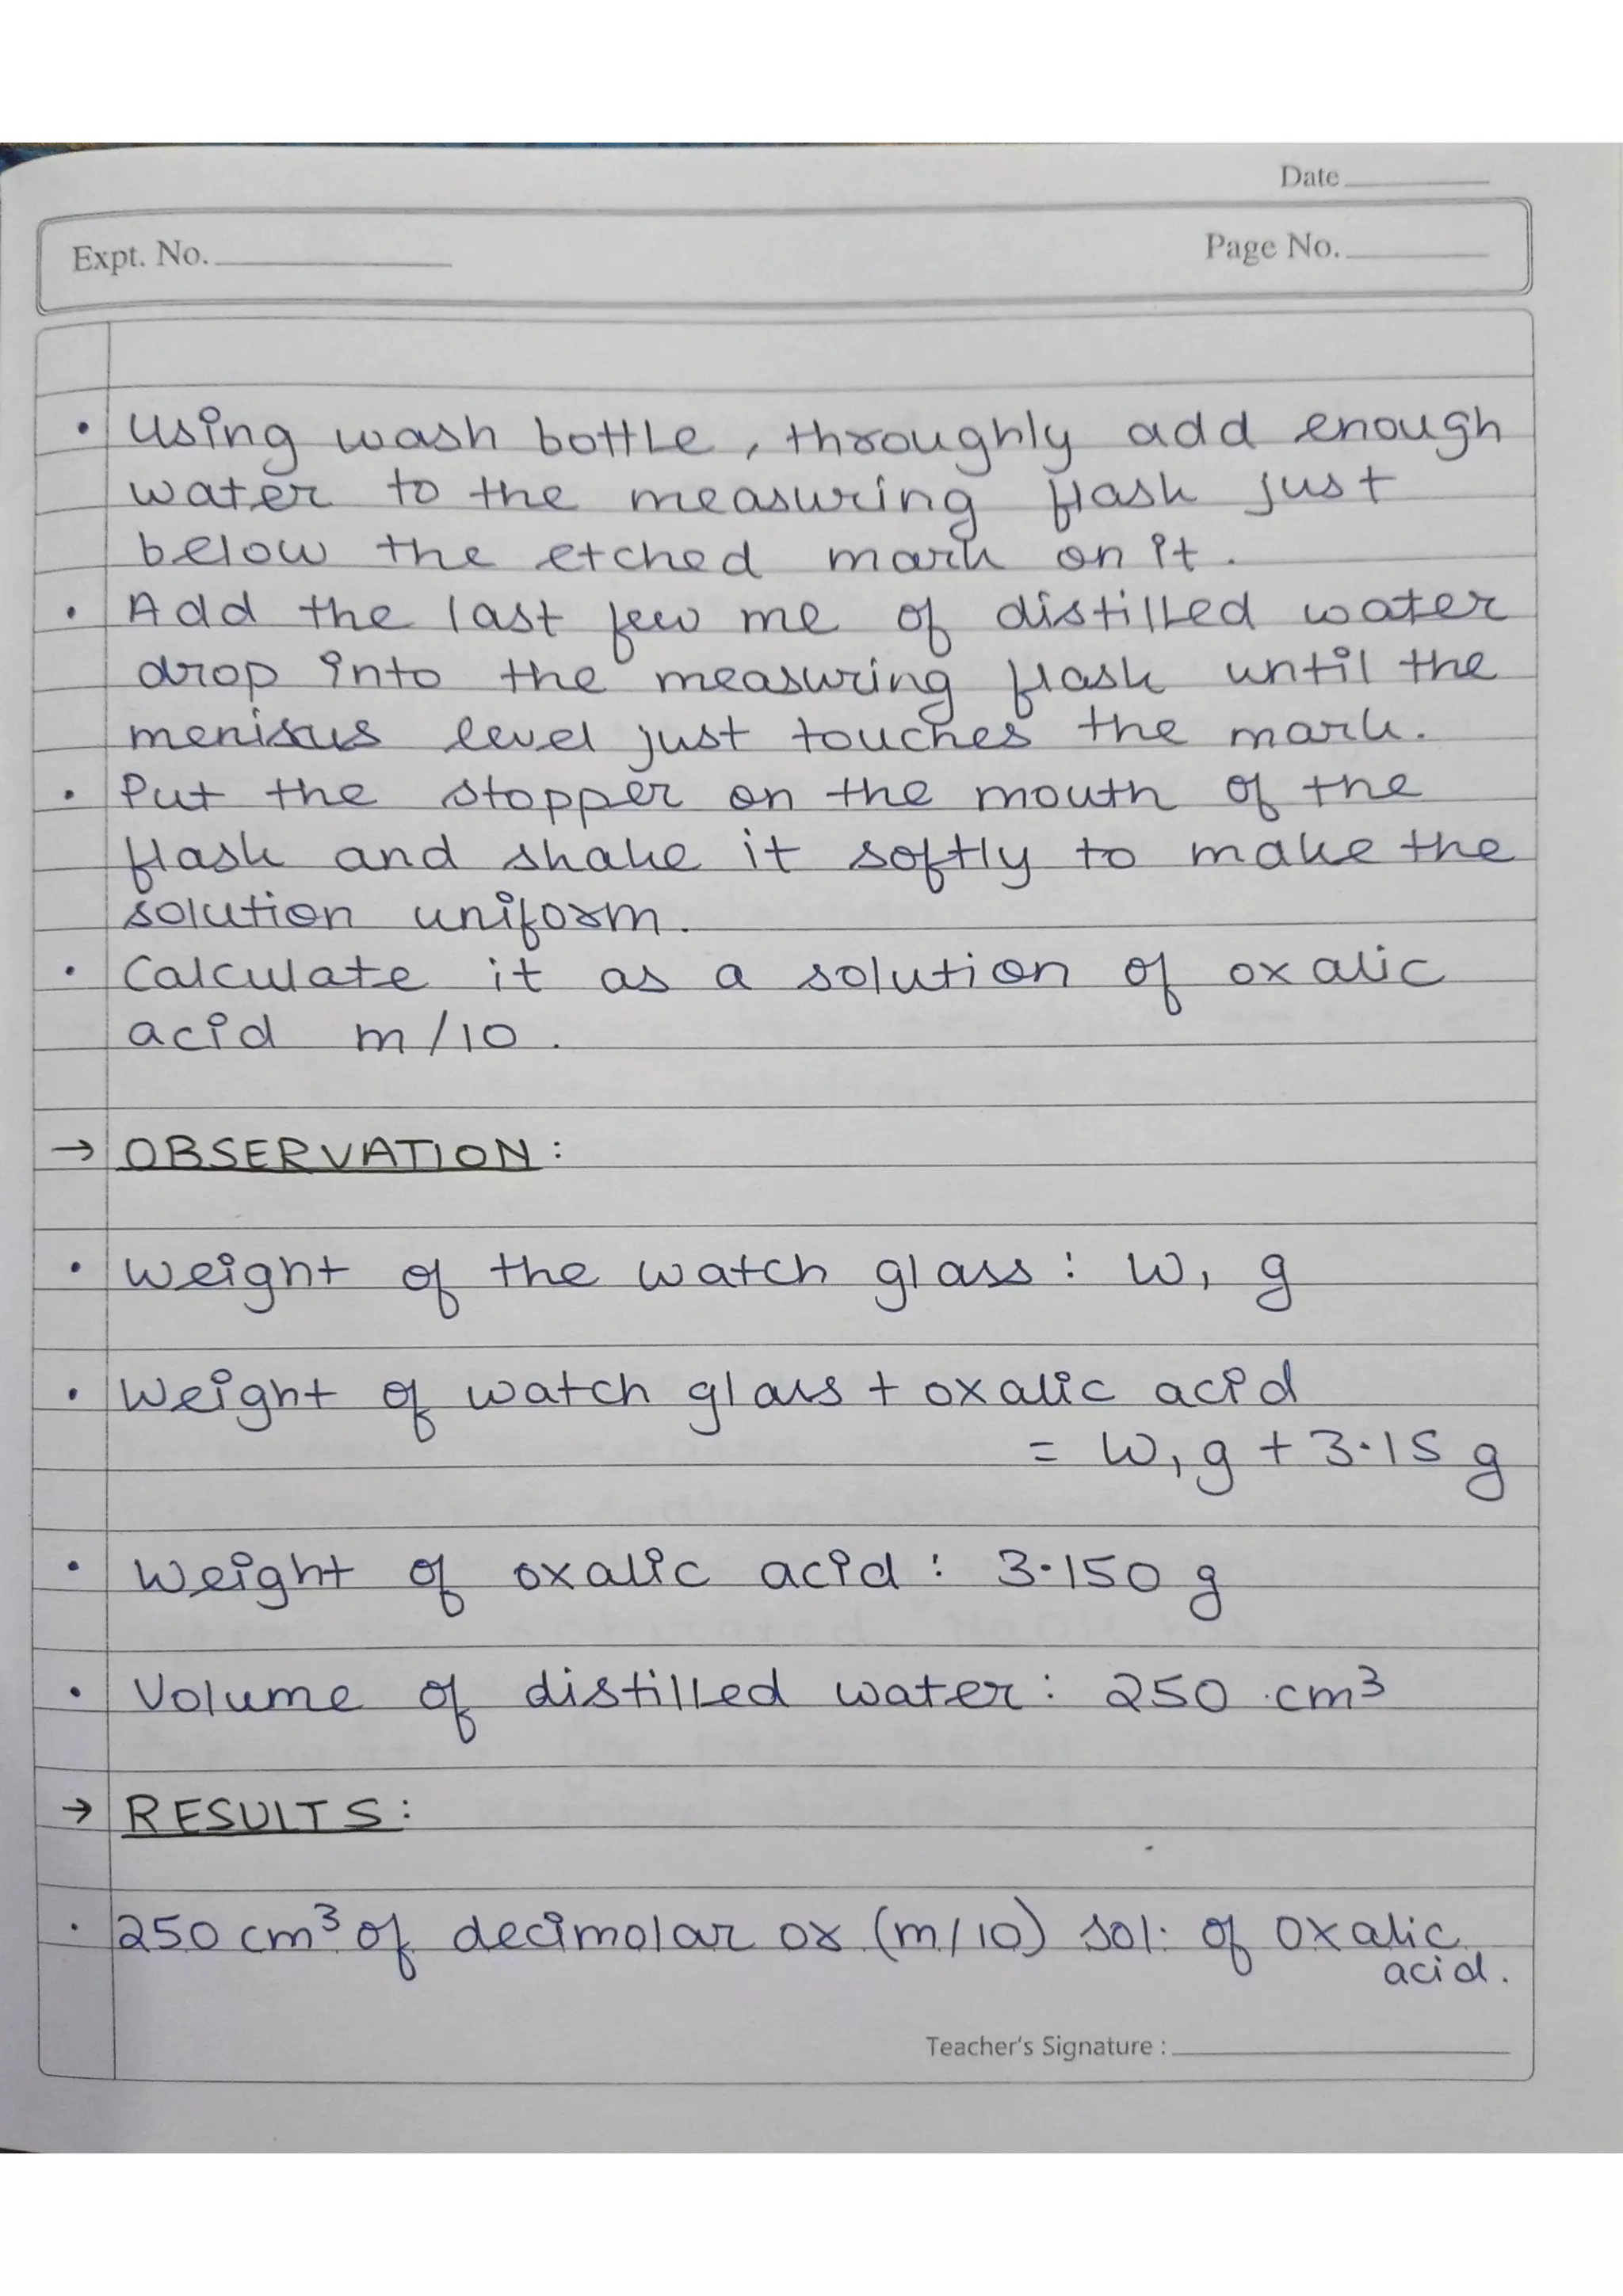 Date
Expt. No.
Page No.
• Using wash bottle, throughly add enough
water to the measuring flask just
below the etched mark on it.
• Add the last few me of distilled water
drop into the measuring flask until the
menisus level just touches the mark.
• Put the stopper on the mouth of the
flask and shake it softly to make the
solution uniform.
• Calculate it as a solution of oxalic
acid m/10.
→ OBSERVATION:
• Weight of the watch glass: W₁ g
• Weight of watch glass + oxalic acid
= W₁ g + 3.15 g
• Weight of oxalic acid: 3.150 g
• Volume of distilled water: 250 cm³
→ RESULTS:
• 250 cm³ of decimolar or (m/10) sol. of Oxalic
acid.
Teacher's Signature :